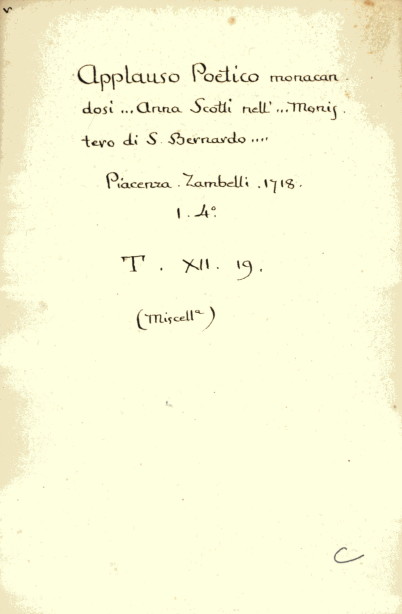 Applauso Poëtico monacan.
dosi ... Anna Scotti nell' ... Monis.
tero di S. Bernardo ....
Piacenza. Zambelli. 1718.
1. 4º.
T. XII. 19.
(Miscellª)
C